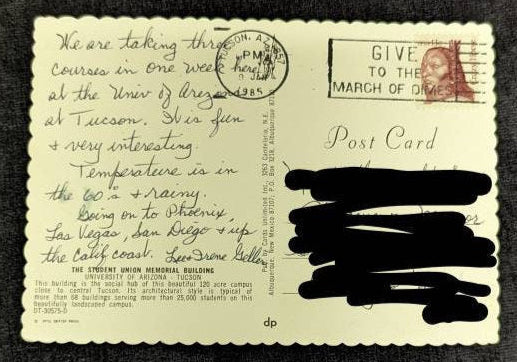 We are taking three
courses in one week here
at the Univ of Arizona
at Tucson. It is fun
& very interesting.
Temperature is in
the 60's & rainy.
Going on to Phoenix,
Las Vegas, San Diego & up
the Calif coast. Lee & Irene Geller
THE STUDENT UNION MEMORIAL BUILDING
UNIVERSITY OF ARIZONA - TUCSON
This building is the social hub of this beautiful 120 acre campus
close to central Tucson. Its architectural style is typical of
more than 68 buildings serving more than 25,000 students on this
beautifully landscaped campus.
DT-30575-D
Pub. by Cards unlimited Inc. 3263 Candelaria, N.E.
Albuquerque, New Mexico 87107, P.O. Box
TUCSON, AZ 857
PM
1985
GIVE
TO THE
MARCH OF DIMES
Post Card
dp